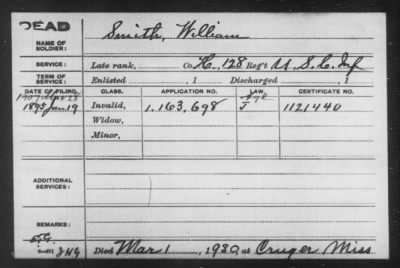 DEAD
NAME OF SOLDIER: Smith, William
SERVICE: Late rank, Co. H, 128 Reg't U. S. C. Inf
TERM OF SERVICE: Enlisted , 1 Discharged , 1
DATE OF FILING. CLASS. APPLICATION NO. LAW. CERTIFICATE NO.
1895 Jan 19 Invalid, 1.163,698 J 1121440
Widow,
Minor,
ADDITIONAL SERVICES:
REMARKS:
Died Mar 1, 1930, at Cruger Miss